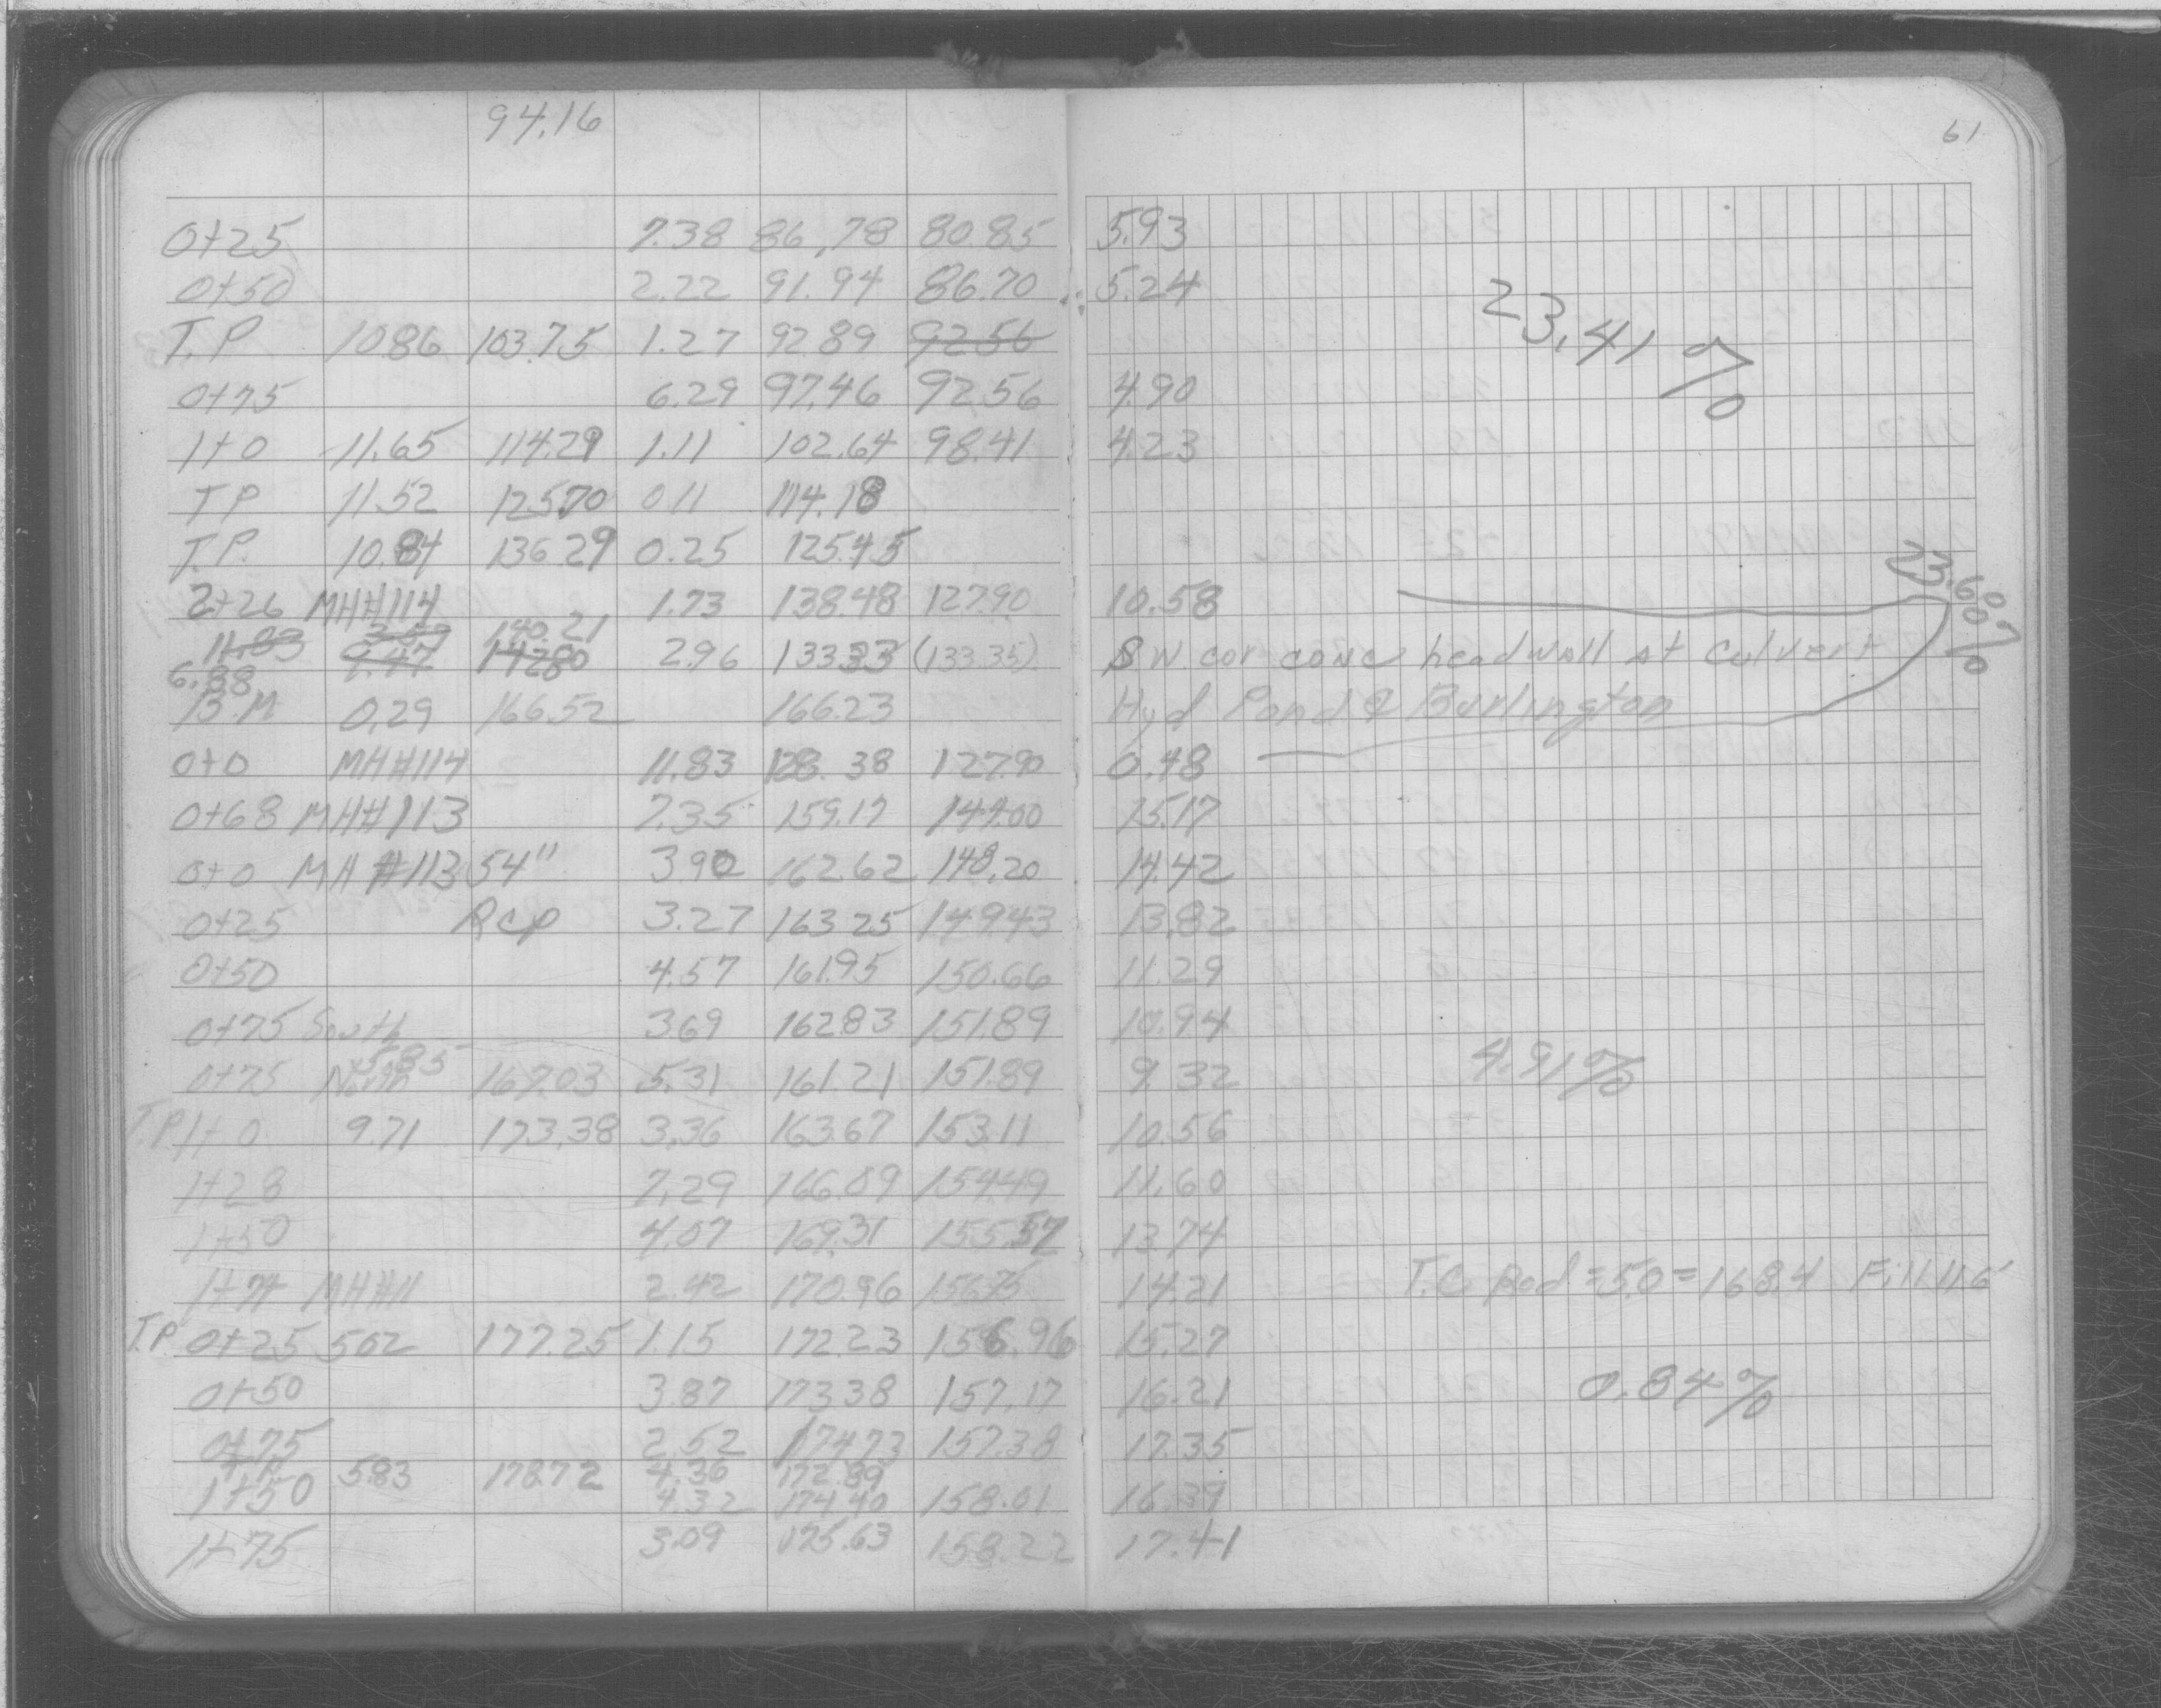 94.16
61
0+25 7.38 86.78 80.85 5.93
0+50 2.22 91.94 86.70 5.24
23.41%
T.P 10.86 103.75 1.27 92.89 92.56
0+75 6.29 97.46 92.56 4.90
1+0 11.65 114.29 1.11 102.64 98.41 4.23
T P 11.52 125.70 0.11 114.18
T.P. 10.84 136.29 0.25 125.45
23.60%
2+26 MH#114 1.73 138.48 127.90 10.58
11.03 140.21
6.88 142.80 2.96 133.33 (133.35) SW cor conc headwall at Culvert
B.M 0.29 166.52 166.23 Hyd Pond & Burlington
0+0 MH#114 11.83 128.38 127.90 0.48
0+68 MH#113 7.35 159.17 144.00 15.17
0+0 MH #113 54" 3.90 162.62 148.20 14.42
0+25 Rcp 3.27 163.25 149.43 13.82
0+50 4.57 161.95 150.66 11.29
0+75 South 3.69 162.83 151.89 10.94
5.85
0+75 North 167.03 5.31 161.21 151.89 9.32 4.91%
T.P. 1+0 9.71 173.38 3.36 163.67 153.11 10.56
1+28 7.29 166.09 154.49 11.60
1+50 4.07 169.31 155.57 13.74
1+77 MH#11 2.42 170.96 156.75 14.21 T.C Rod = 5.0 = 168.4 Fill 11.6'
T.P. 0+25 5.02 177.25 1.15 172.23 156.96 15.27
0+50 3.87 173.38 157.17 16.21 0.84%
0+75 2.52 174.73 157.38 17.35
T.P. 5.83 178.72 4.36 172.89
1+50 4.32 174.40 158.01 16.39
1+75 3.09 175.63 158.22 17.41